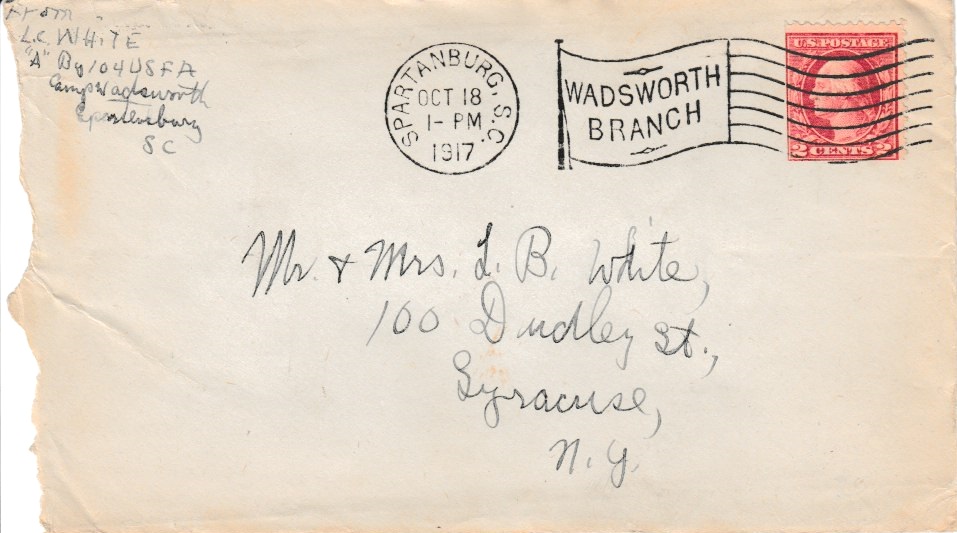 From
L.C. WHITE
"A" By 104 USFA
Camp Wadsworth
Spartenburg
SC
SPARTANBURG, S.C.
OCT 18
1- PM
1917
WADSWORTH
BRANCH
U.S. POSTAGE
2 CENTS 2
Mr. & Mrs. L. B. White,
100 Dudley St.,
Syracuse,
N.Y.